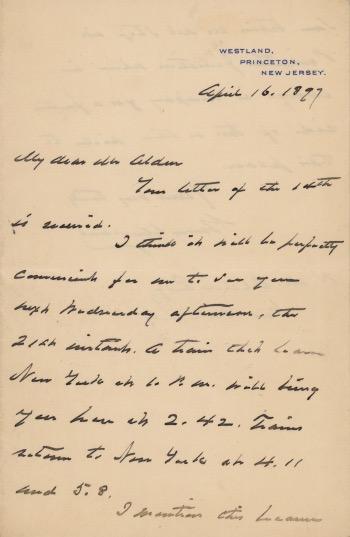 WESTLAND,
PRINCETON,
NEW JERSEY.
April 16. 1897
My dear Mr Alden
Your letter of the 14th
is received.
I think it will be perfectly
convenient for me to see you
next Wednesday afternoon, the
21st instant. A train that leaves
New York at 1 P.M. will bring
you here at 2.42. Trains
return to New York at 4.11
and 5.8.
I mention this because